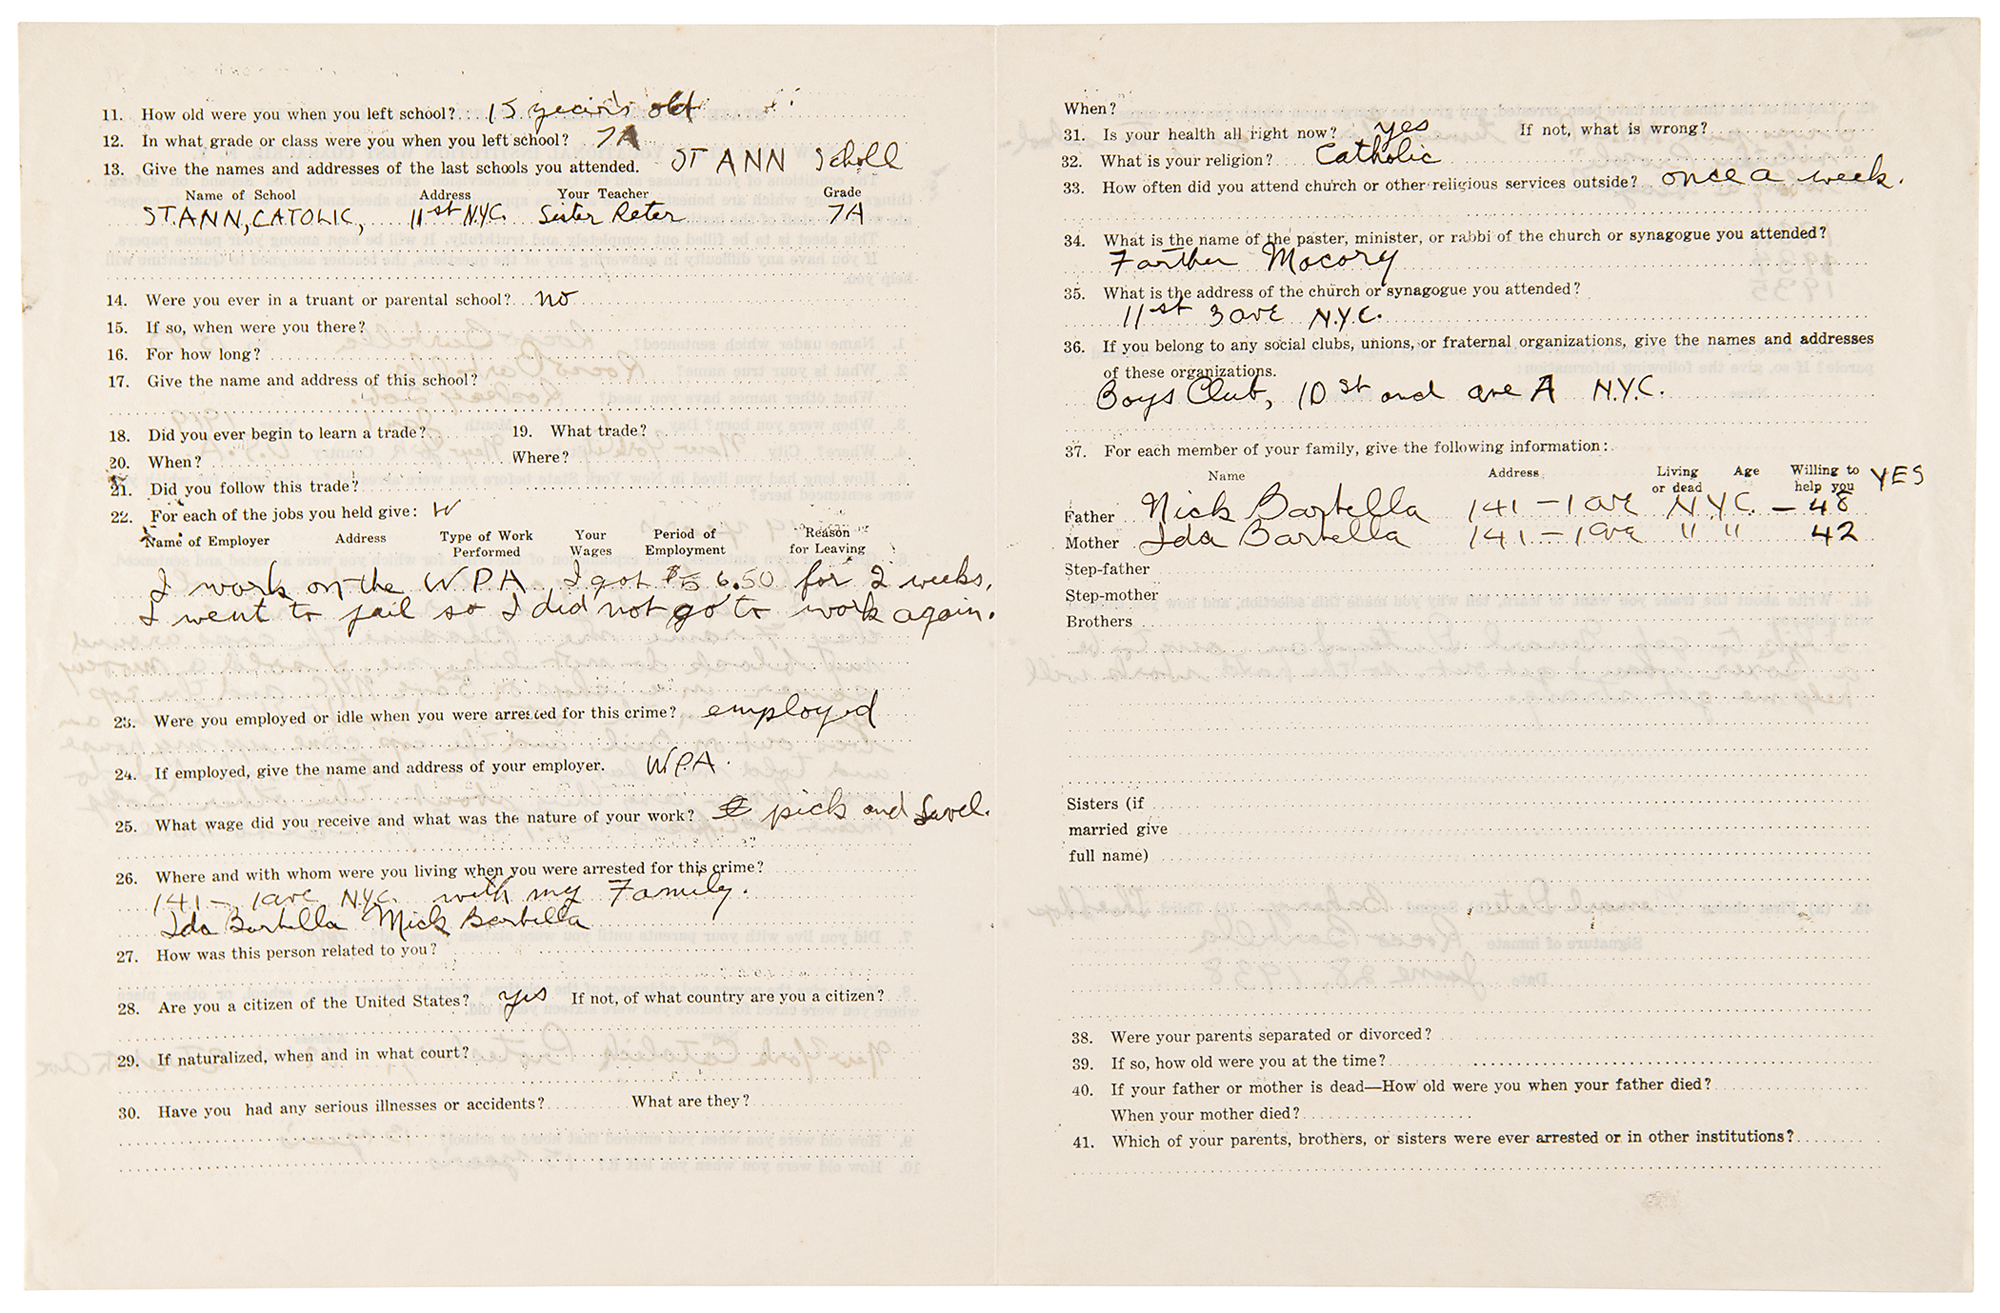 11. How old were you when you left school? 15 years old
12. In what grade or class were you when you left school? 7A
13. Give the names and addresses of the last schools you attended. ST ANN Scholl
Name of School Address Your Teacher Grade
ST. ANN, CATOLIC, 11st N.Y.C. Sister Peter 7A
14. Were you ever in a truant or parental school? no
15. If so, when were you there?
16. For how long?
17. Give the name and address of this school?
18. Did you ever begin to learn a trade? 19. What trade?
20. When? Where?
21. Did you follow this trade?
22. For each of the jobs you held give: W
Name of Employer Address Type of Work Your Period of Reason
Performed Wages Employment for Leaving
I work on the W P A I got $ 6.50 for 2 weeks,
I went to jail so I did not go to work again.
23. Were you employed or idle when you were arrested for this crime? employed
24. If employed, give the name and address of your employer. W.P.A.
25. What wage did you receive and what was the nature of your work? pick and savel.
26. Where and with whom were you living when you were arrested for this crime?
141 - 1 ave N.Y.C. with my Family.
Ida Barbella Nick Barbella
27. How was this person related to you?
28. Are you a citizen of the United States? yes If not, of what country are you a citizen?
29. If naturalized, when and in what court?
30. Have you had any serious illnesses or accidents? What are they?
When?
31. Is your health all right now? yes If not, what is wrong?
32. What is your religion? Catholic
33. How often did you attend church or other religious services outside? once a week.
34. What is the name of the paster, minister, or rabbi of the church or synagogue you attended?
Farther Macory
35. What is the address of the church or synagogue you attended?
11st 3 ave N.Y.C.
36. If you belong to any social clubs, unions, or fraternal organizations, give the names and addresses
of these organizations.
Boys Club, 10 st and ave A N.Y.C.
37. For each member of your family, give the following information:
Name Address Living Age Willing to YES
or dead help you
Father Nick Barbella 141 - 1 ave N.Y.C. - 48
Mother Ida Barbella 141 - 1 ave " " 42
Step-father
Step-mother
Brothers
Sisters (if
married give
full name)
38. Were your parents separated or divorced?
39. If so, how old were you at the time?
40. If your father or mother is dead—How old were you when your father died?
When your mother died?
41. Which of your parents, brothers, or sisters were ever arrested or in other institutions?